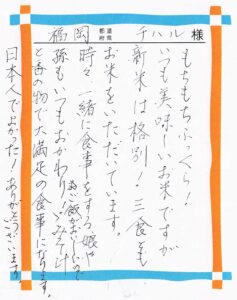 福岡 都道府県 チハル 様
もちもちふっくら!
いつも美味しいお米ですが
新米は格別!三食とも
お米をいただいています。
時々一緒に食事をする娘や
孫もいつもおかわり!みそ汁
ご飯がおいしいので
と香の物で大満足の食事になります。
日本人でよかった!ありがとうございます